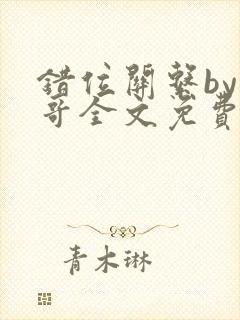 錯位關繫by
哥全文免費
青木琳